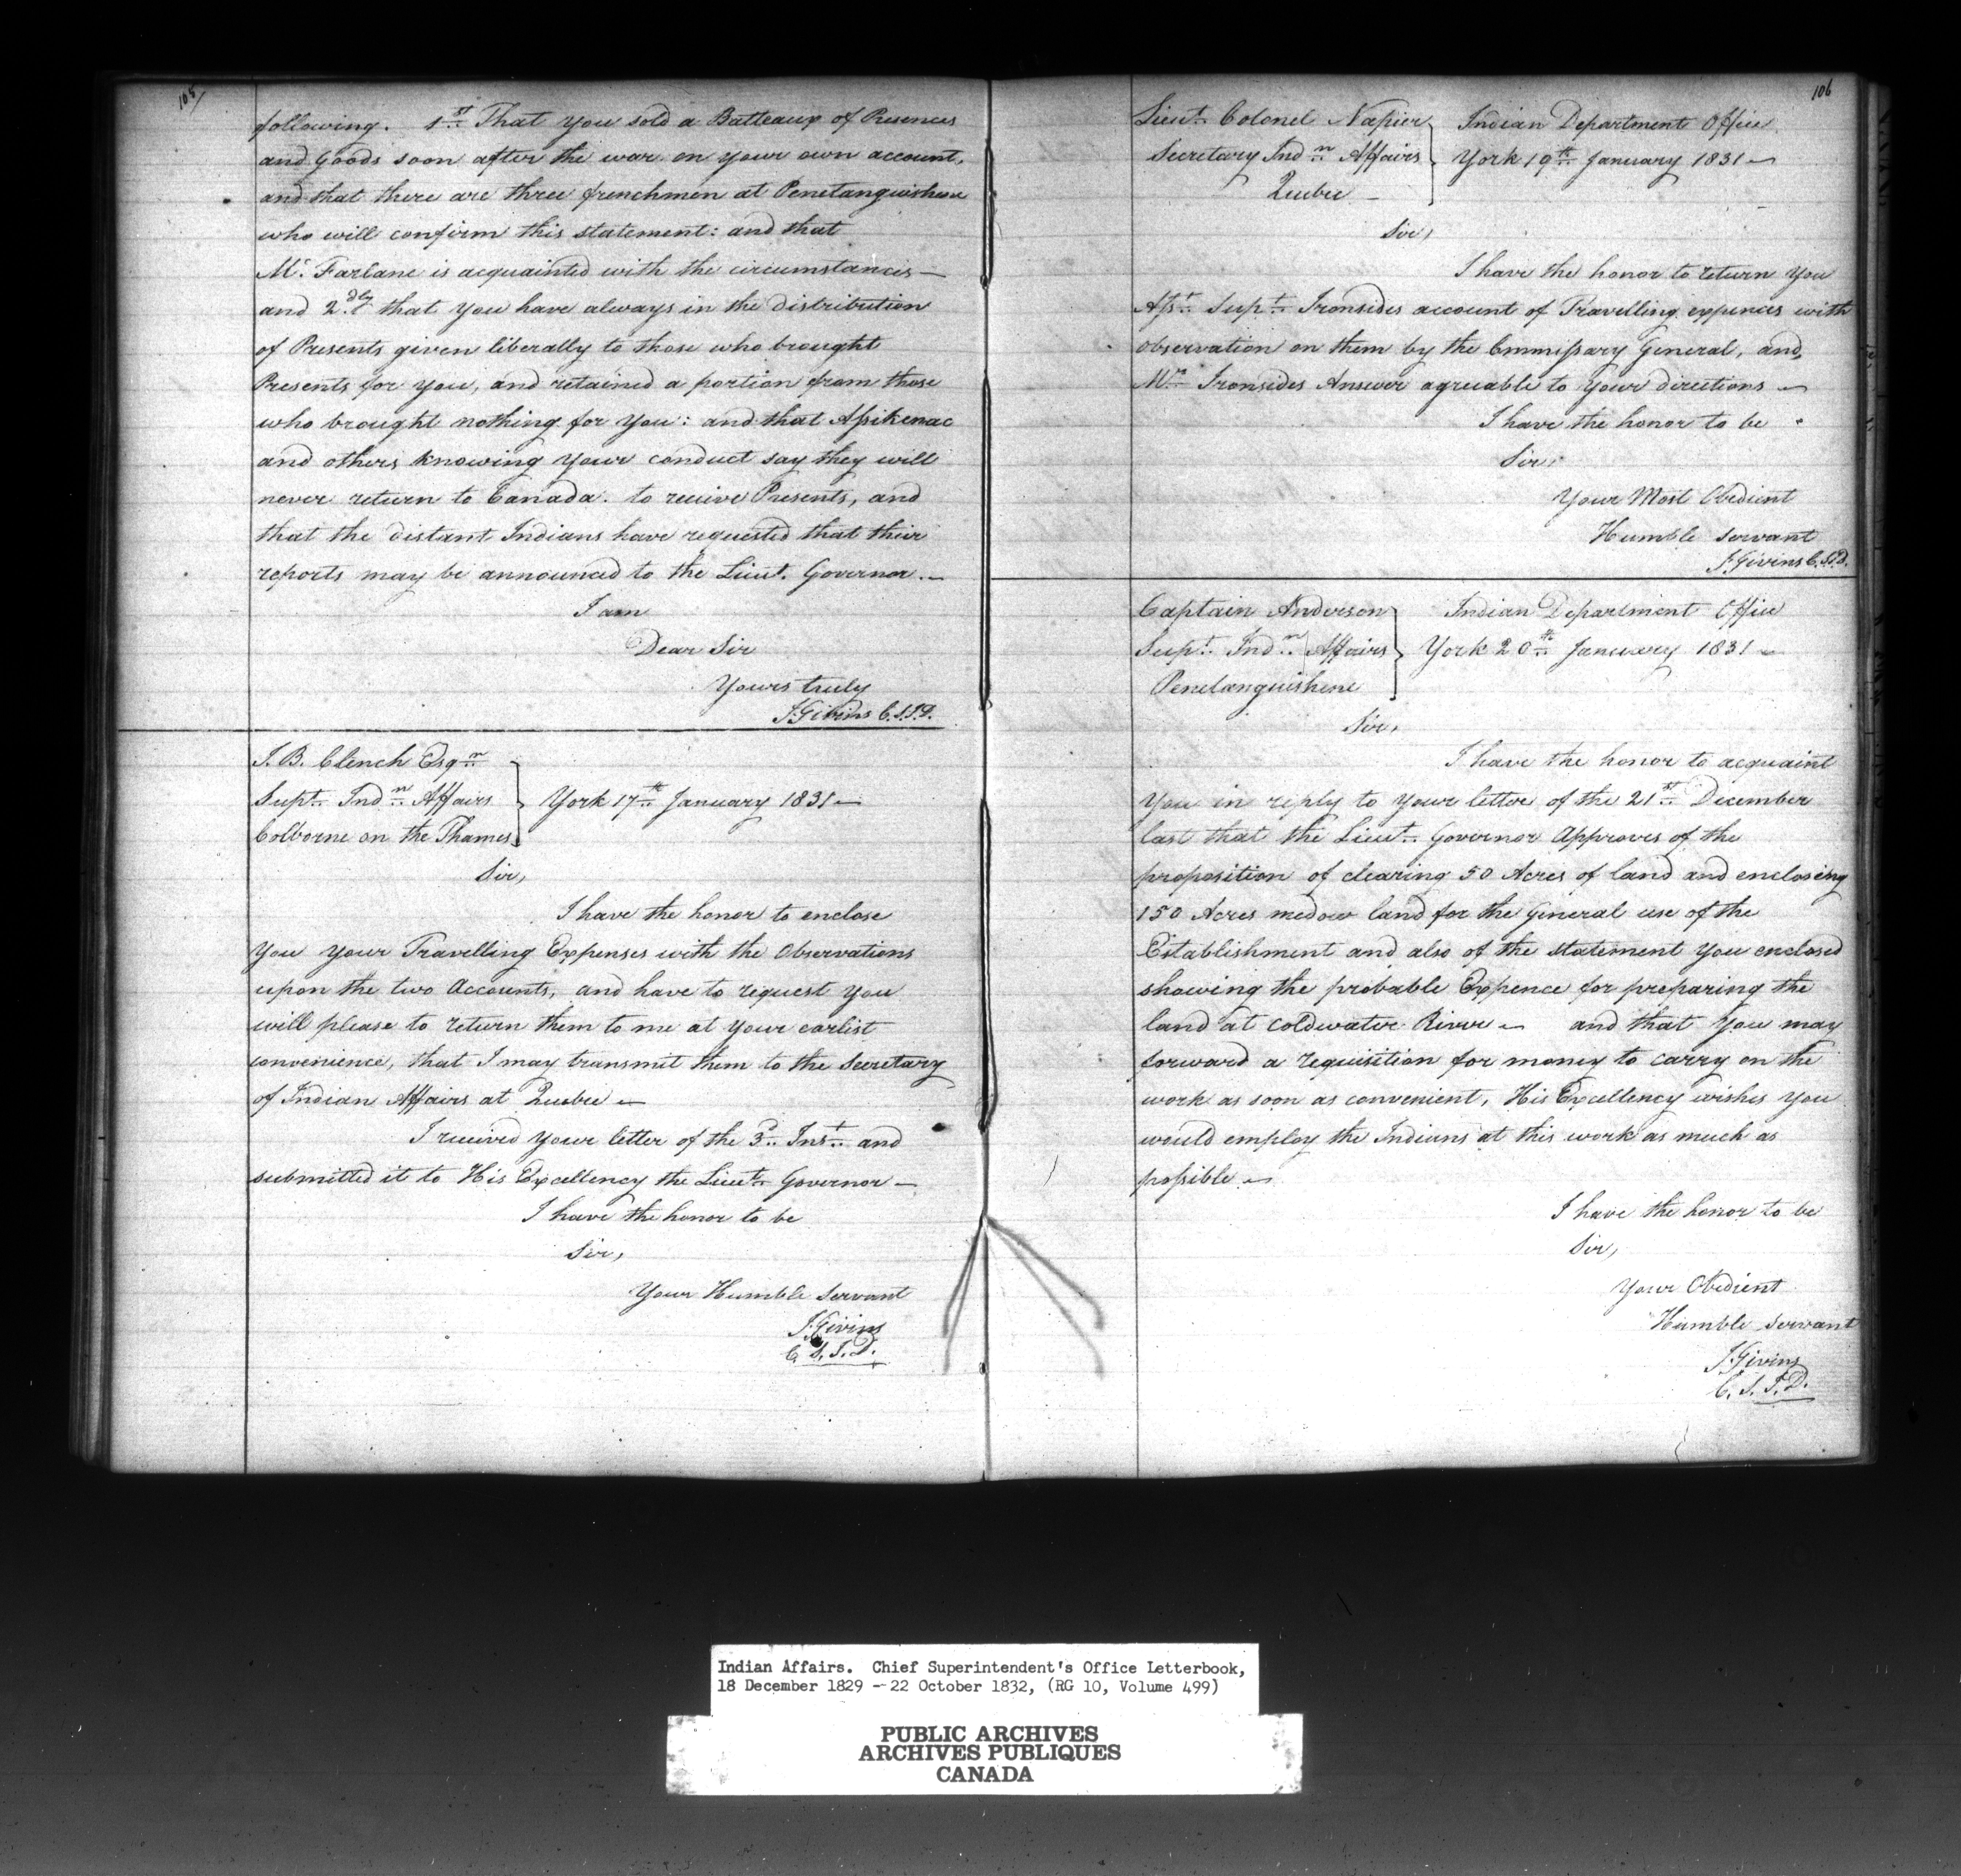 105/
following. 1st That you sold a Batteaux of Presences
and Goods soon after the war on your own account,
and that there are three frenchmen at Penetanguishene
who will confirm this statement: and that
Mc Farlane is acquainted with the circumstances —
and 2dly that you have always in the distribution
of Presents given liberally to those who brought
Presents for you, and retained a portion from those
who brought nothing for you: and that Assikenac
and others knowing your conduct say they will
never return to Canada. to receive Presents, and
that the distant Indians have requested that their
reports may be announced to the Lieut. Governor. —
I am
Dear Sir
Yours truly
J. Givins C.S.I.D.
J. B. Clench Esqr
Supt. Indn. Affairs
Colborne on the Thames
York 17th January 1831 —
Sir,
I have the honor to enclose
you your Travelling Expenses with the Observations
upon the two Accounts, and have to request you
will please to return them to me at your earlist
convenience, that I may transmit them to the Secretary
of Indian Affairs at Quebec —
I received your letter of the 3d. Inst. and
submitted it to His Excellency the Lieut. Governor —
I have the honor to be
Sir,
Your Humble servant
J. Givins
C. S. I. D.
106
Lieut. Colonel Napier
Secretary Indn. Affairs
Quebec —
Indian Department Office
York 19th January 1831 —
Sir,
I have the honor to return you
Asst. Supt. Ironsides account of Travelling expences with
observation on them by the Commissary General, and
Mr. Ironsides Answer agreeable to your directions —
I have the honor to be
Sir,
Your Most Obedient
Humble servant
J. Givins C.S.I.D.
Captain Anderson
Supt. Indn. Affairs
Penetanguishene
Indian Department Office
York 20th January 1831 —
Sir,
I have the honor to acquaint
you in reply to your letter of the 21st December
last that the Lieut. Governor Approves of the
proposition of clearing 50 Acres of land and enclosing
150 Acres medow land for the General use of the
Establishment and also of the statement you enclosed
showing the probable Expence for preparing the
land at Coldwater River — and that you may
forward a requisition for money to carry on the
work as soon as convenient, His Excellency wishes you
would employ the Indians at this work as much as
possible —
I have the honor to be
Sir,
Your Obedient
Humble servant
J. Givins
C. S. I. D.
Indian Affairs. Chief Superintendent's Office Letterbook,
18 December 1829 - 22 October 1832, (RG 10, Volume 499)
PUBLIC ARCHIVES
ARCHIVES PUBLIQUES
CANADA